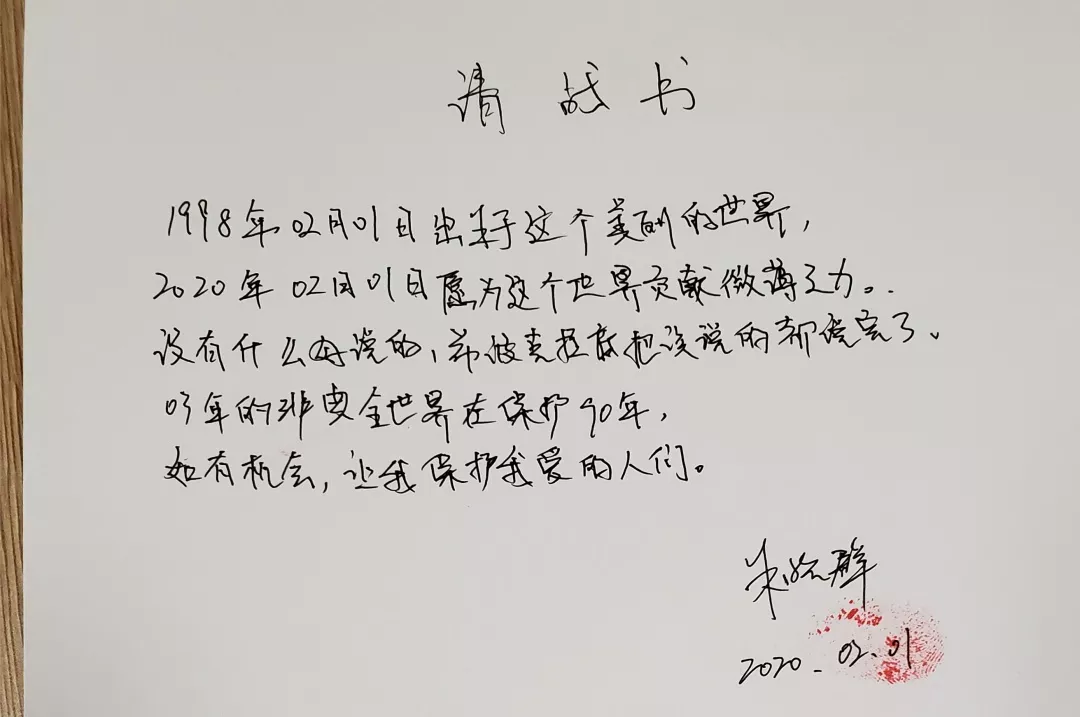 请战书
1998年02月01日出生于这个美丽的世界,
2020年02月01日愿为这个世界贡献微薄之力。
没有什么好说的,希波克拉底把该说的都说完了。
03年的非典全世界在保护90年,
如有机会,让我保护我爱的人们。
朱
2020.02.01